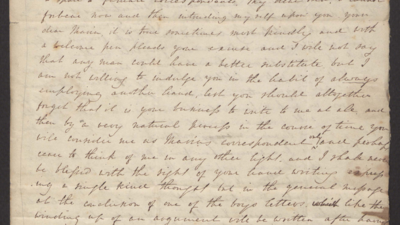 upon a female correspondence my dear
fortune now and then intruding myself upon you your
dear Maria, it is true sometimes most friendly and with
a welcome pen pleads your excuse and I will not say
that any man would have a better substitute but I
am not willing to indulge you in the habit of always
employing another hand, lest you should altogether
forget that it is your business to write to me at all and
then by a very natural process in the course of time you
will consider me as Maria's correspondent only and perhaps
cease to think of me in any other light, and I shall never
be blessed with the sight of your hand writing express
ing a single kind thought
at the conclusion of one of the boys letters, which like the
winding up of an argument will be written after having